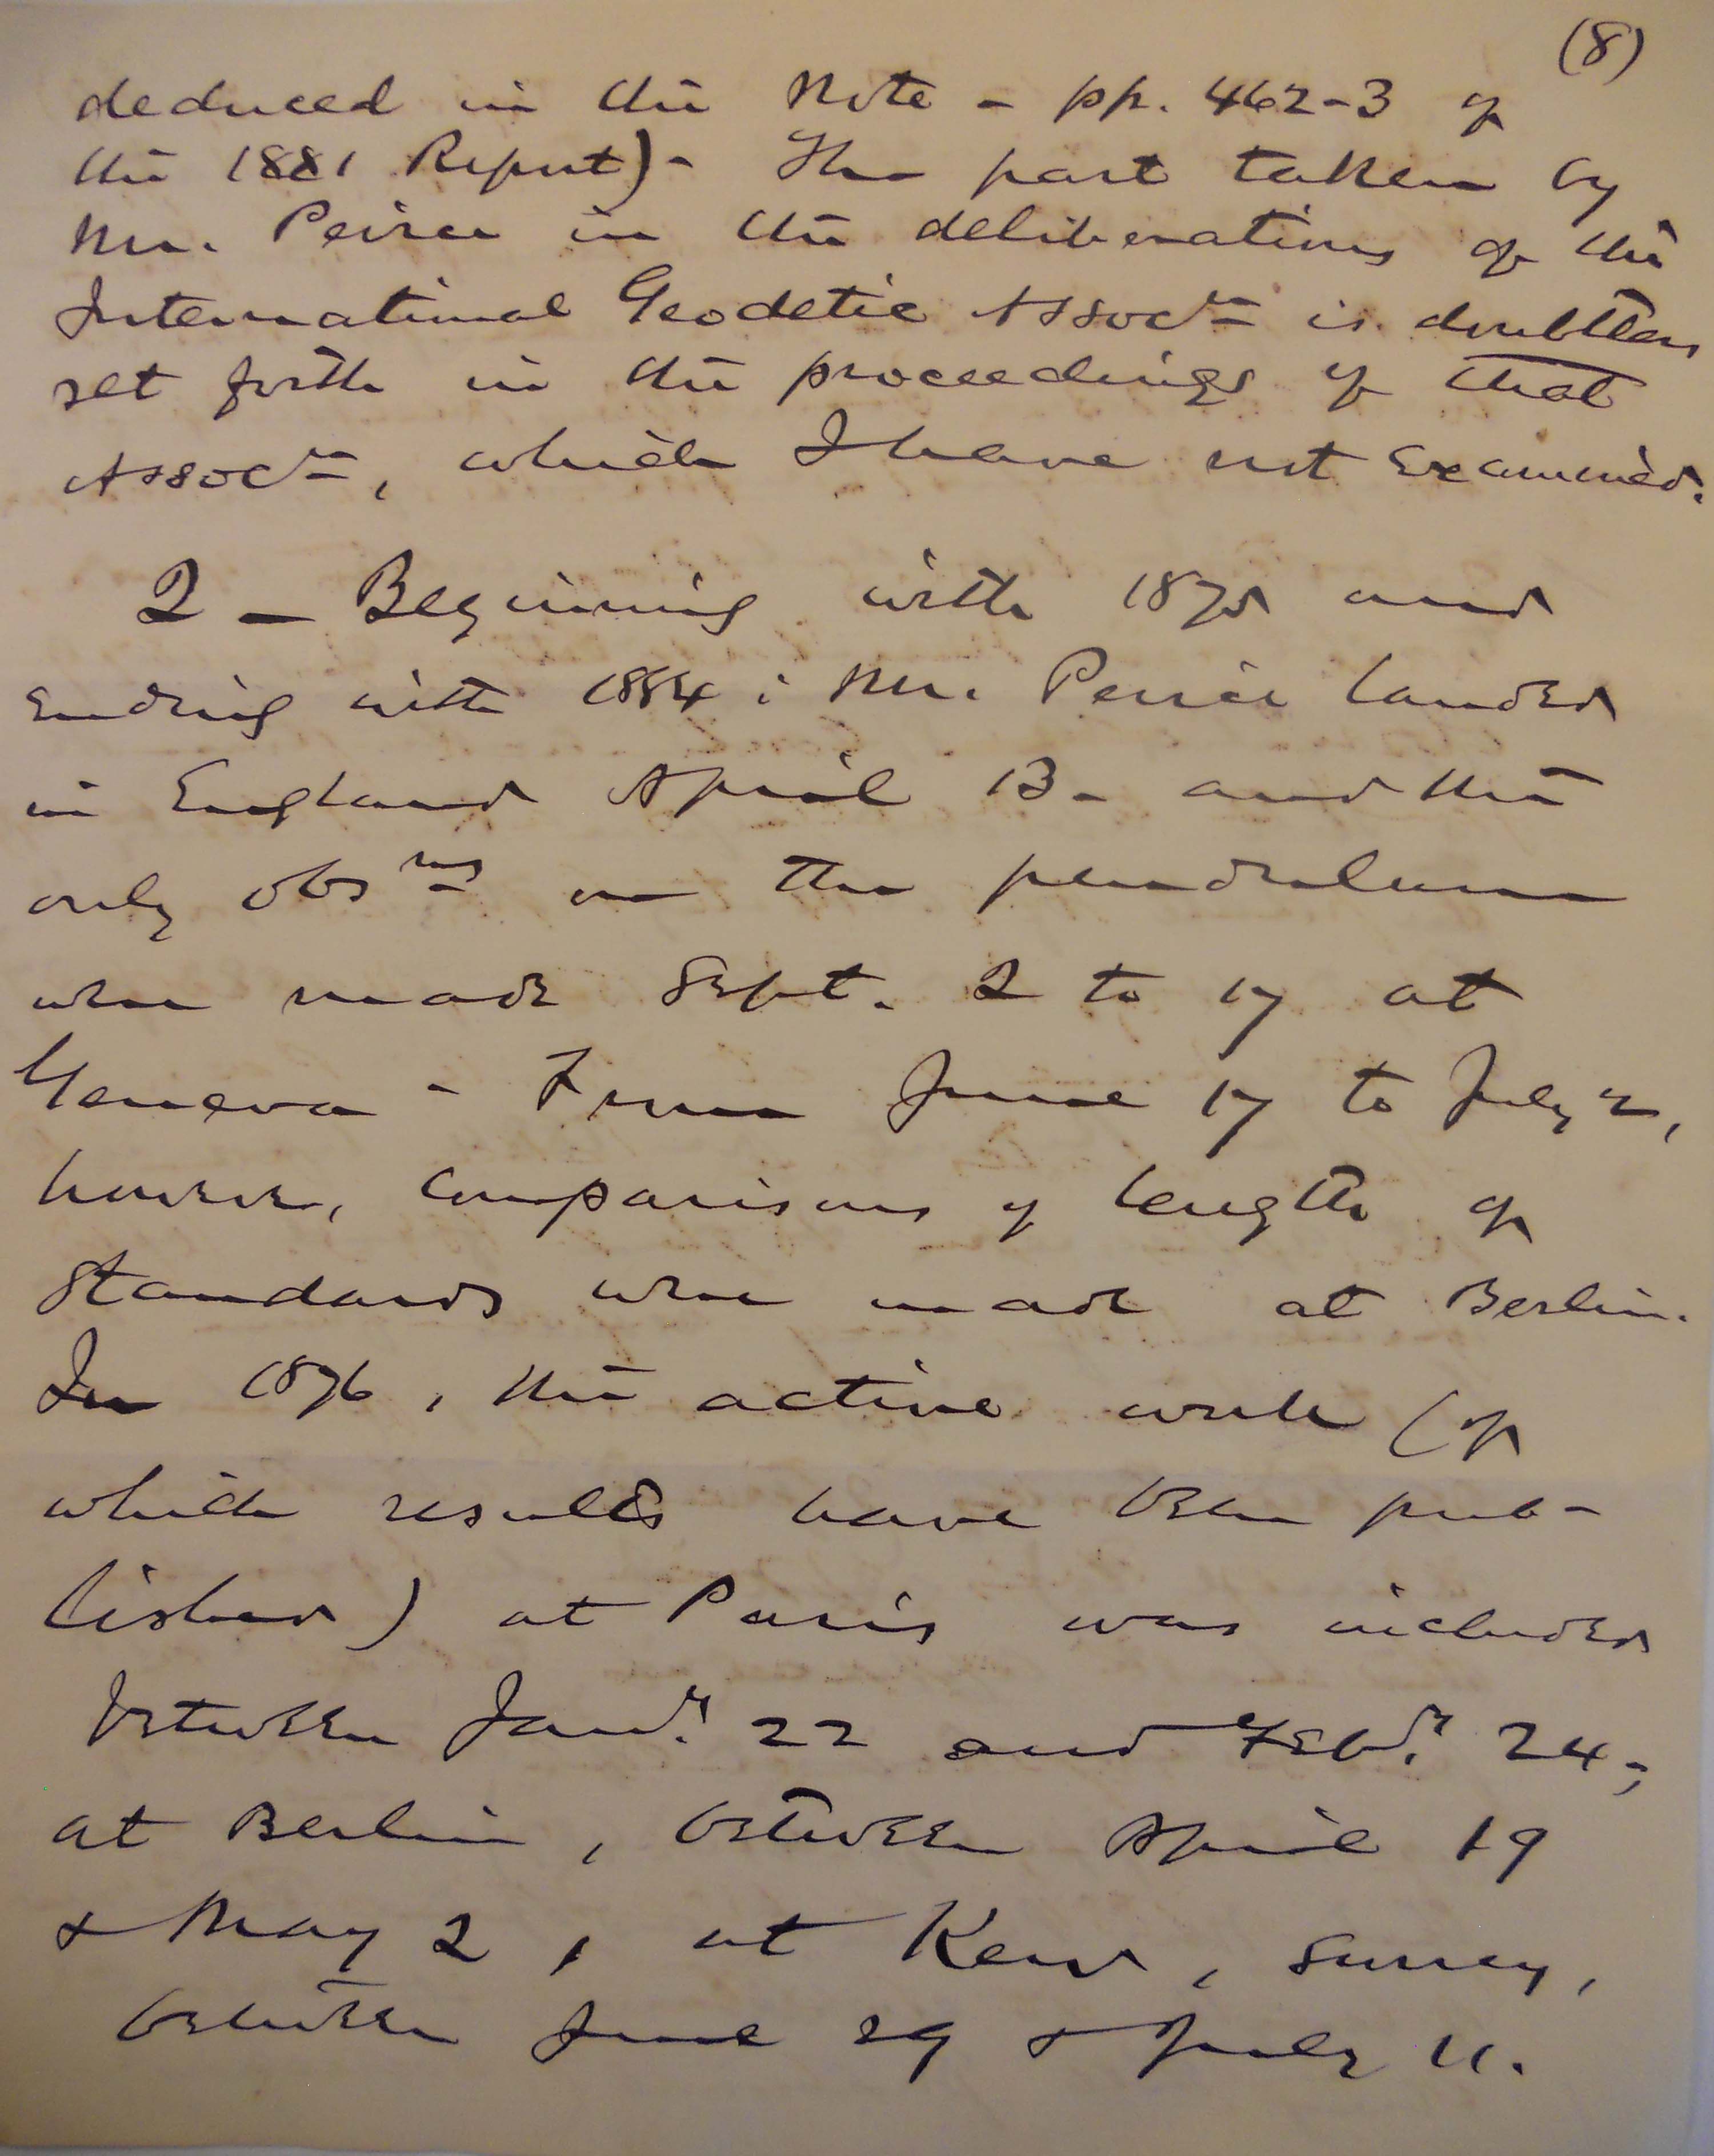 (8)
deduced in the Note - pp. 462-3 of
the 1881 Report) - The part taken by
Mr. Peirce in the deliberations of the
International Geodetic Assocn is doubtless
set forth in the proceedings of that
Assocn, which I have not examined.
2 - Beginning with 1875 and
ending with 1884: Mr. Peirce landed
in England April 13 - and the
only obsns on the pendulum
were made Sept. 2 to 17 at
Geneva - From June 17 to July 2,
however, comparisons of length of
standards were made at Berlin.
In 1876, the active work (of
which results have been pub-
lished) at Paris was included
between Jany. 22 and Feby. 24;
at Berlin, between April 19
& May 2, at Kew, Surrey,
between June 29 & July 11.